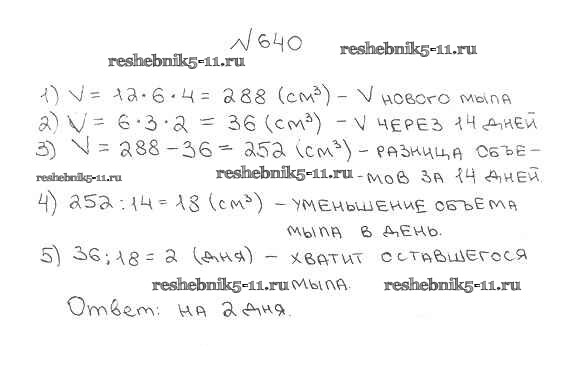 №640
reshebnik5-11.ru
reshebnik5-11.ru
1) V = 12·6·4 = 288 (см³) – V нового мыла
2) V = 6·3·2 = 36 (см³) – V через 14 дней
3) V = 288 – 36 = 252 (см³) – разница объе-
reshebnik5-11.ru
reshebnik5-11.ru
-мов за 14 дней.
4) 252:14 = 18 (см³) – уменьшение объема
мыла в день.
5) 36:18 = 2 (дня) – хватит оставшегося
reshebnik5-11.ru
мыла.
reshebnik5-11.ru
Ответ: на 2 дня.